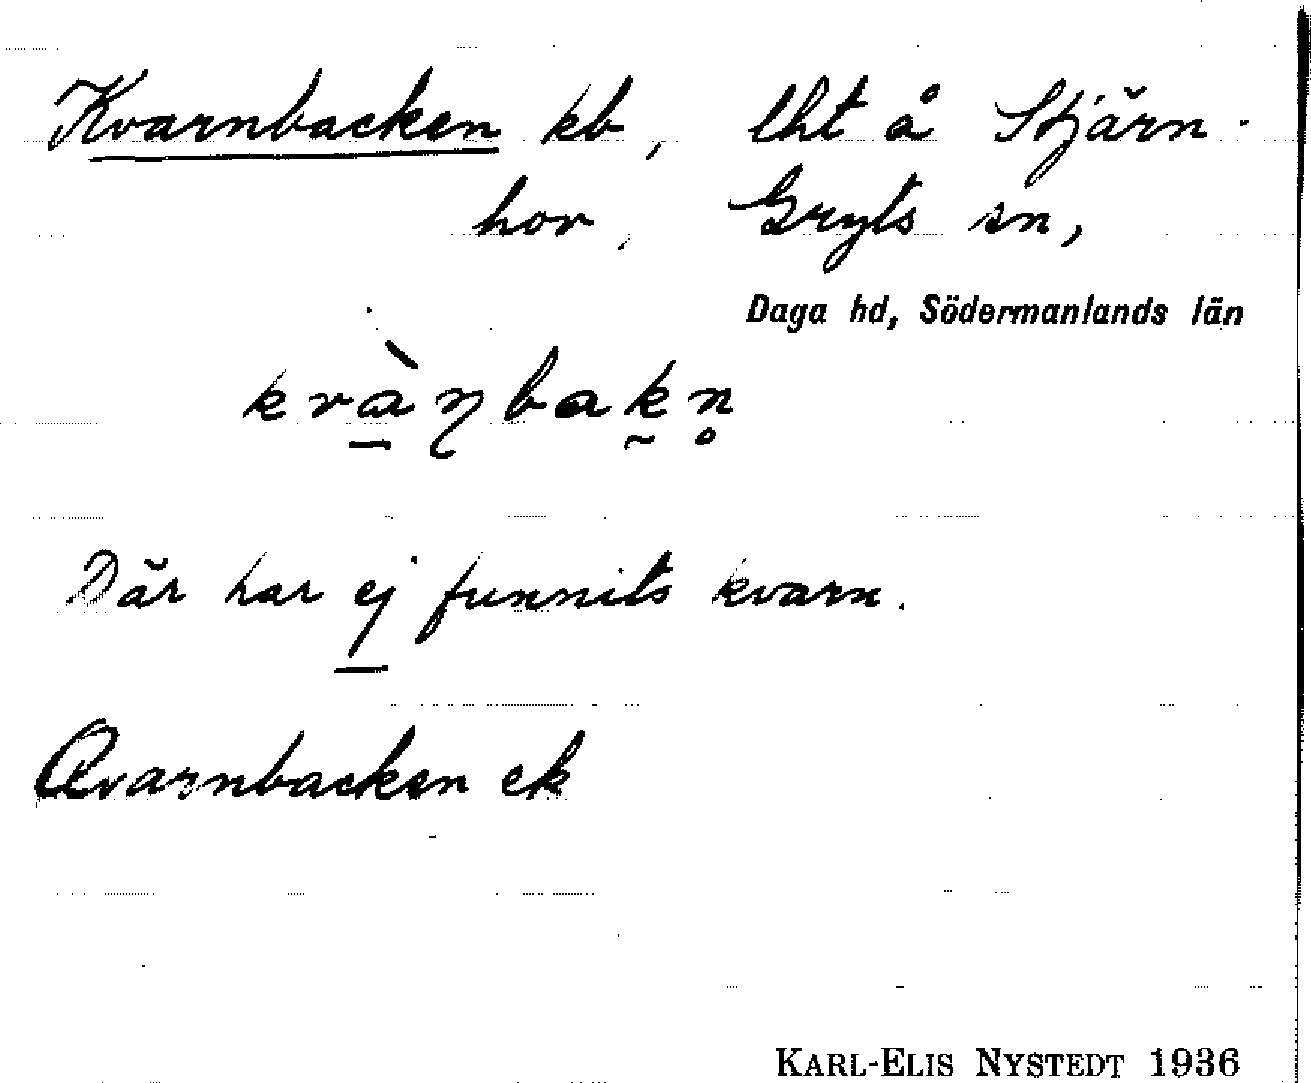 Kvarnbacken kb, lht å Stjärn-
hov, Gryts sn,
Daga hd, Södermanlands län
kvὰ̱ŋbak̰n̥
Där har ej funnits kvarn.
Qvarnbacken ek
KARL-ELIS NYSTEDT 1936